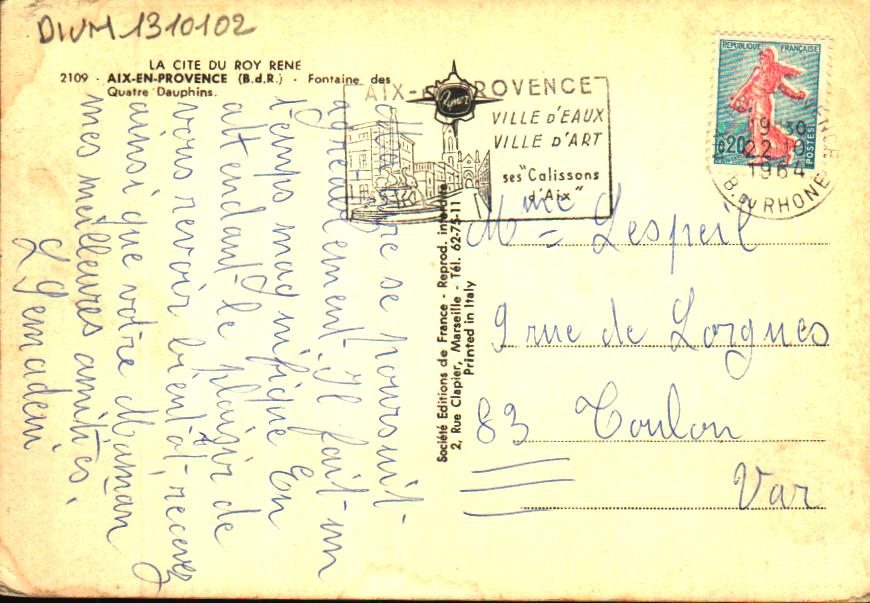 DIVM 1310102
LA CITE DU ROY RENE
2109 - AIX-EN-PROVENCE (B.d.R.) - Fontaine des
Quatre Dauphins.
AIX-EN-PROVENCE
VILLE D'EAUX
VILLE D'ART
ses "Calissons
d'Aix"
REPUBLIQUE FRANÇAISE
0,20
POSTES
19 30
22-10
1964
B. DU RHONE
se poursuit
agréablement. Il fait un
temps magnifique. En
attendant le plaisir de
vous revoir bientôt, recevez
ainsi que votre Maman
mes meilleures amitiés.
Société Editions de France - Reprod. interdite
2, Rue Clapier, Marseille - Tél. 62-75-11
Printed in Italy
Lespeil
9 rue de Lorgues
83 Toulon
Var